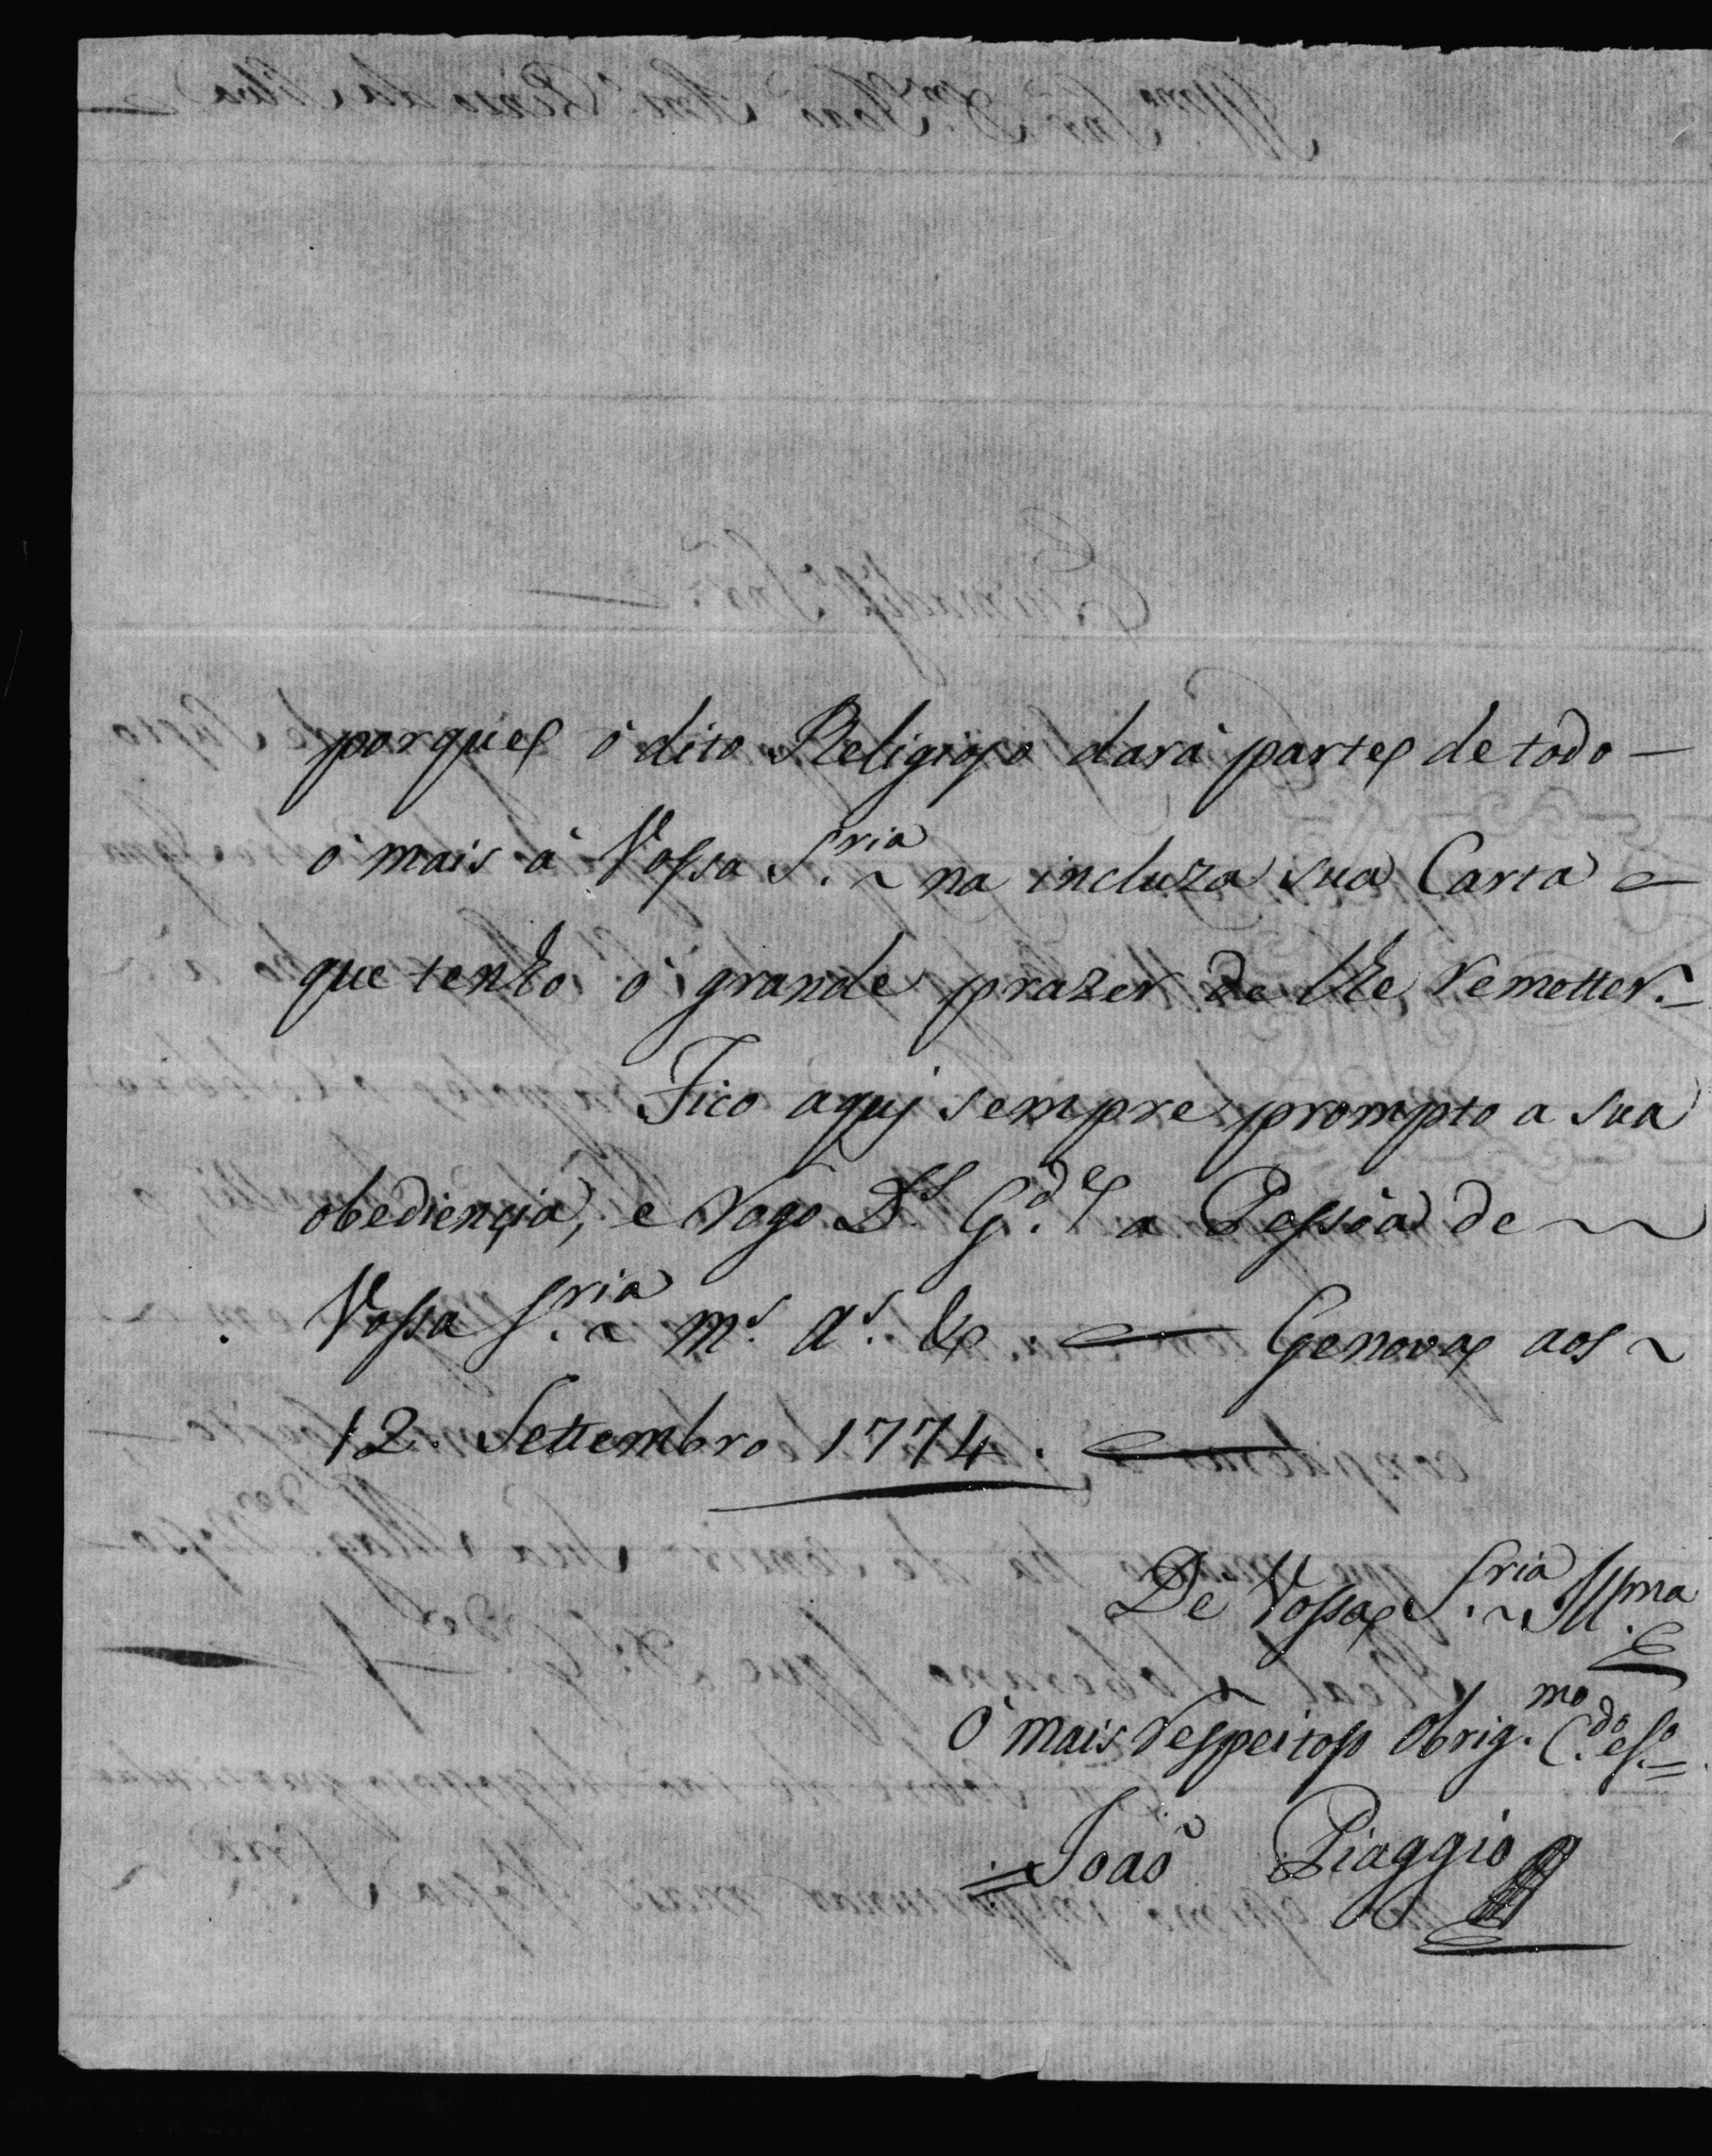 porque ò dito Religioso darà parte de todo —
ò mais à Vossa S.ria ~ na incluza sua Carta —
que tenho ò grande prazer de lhe remetter. —
Fico aquj sempre prompto a sua
obediençia, e rogo D.s G.de a Pessòa de ~~
Vossa S.ria ~ m.s a.s &. — Genova aos ~
12. Settembro 1774. —
De Vossa S.ria ~ Ill.ma
O mais respeitoso Obrig.mo C.do e S.o =
= Joaõ Piaggio